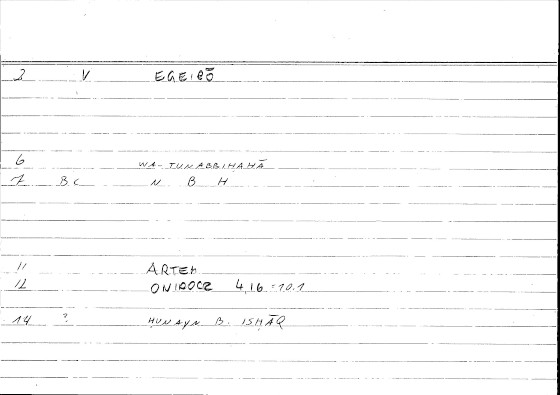 2 V EGEIRŌ
6 WA-TUNABBIHAHĀ
7 BC N B H
11 ARTEM
12 ONIROCR 4,16 = 10.1
14 ? ḤUNAYN B. ISḤĀQ